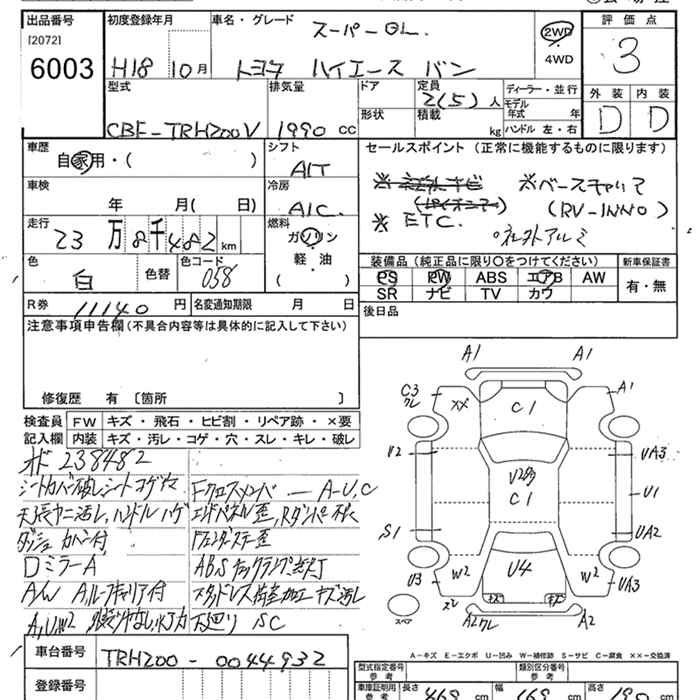 出品番号
[2072]
6003
初度登録年月
H18 10月
車名・グレード
スーパーGL
トヨタ ハイエース バン
2WD
4WD
評価点
3
外装 内装
D D
型式
CBF-TRH200V
排気量
1990 cc
ドア
形状
定員
2(5)人
積載
kg
ディーラー・並行
モデル年式 年
ハンドル 左・右
車歴
自家用・( )
シフト
A/T
セールスポイント (正常に機能するものに限ります)
※ベースキャリア
(RV-INNO)
※ ETC.
社外アルミ
車検
年 月( 日)
冷房
A/C.
走行
23万8千482km
燃料
ガソリン
軽・油
( )
色
白
色替
色コード
058
装備品 (純正品に限り○をつけてください)
PS PW ABS エアB AW
SR ナビ TV カワ
新車保証書
有・無
R券
11140円
名変通知期限 月 日
後日品
注意事項申告欄 (不具合内容等は具体的に記入して下さい)
修復歴 有 〔箇所 〕
検査員記入欄
FW キズ・飛石・ヒビ割・リペア跡・×要
内装 キズ・汚レ・コゲ・穴・スレ・キレ・破レ
238482
シートカバー破レ シートコゲ穴
天張ヤニ汚レ, ハンドルハゲ
ダッシュカバー付
DミラーA
A/W A, ルーフキャリア付
A, U, W2
Fクロスメンバー A-U, C
エンドパネル歪,
Fフェンダーステー歪
ABSチェックランプ点灯
下廻り SC
A1 A1
C3 クレ
XX
C1
A1
U2
UA3
U2多
C1
U1
S1
UA2
U3
W2
U4
W2
UA3
スレ
スペア
A2クレ
A2
A-キズ E-エクボ U-凹み W-補修跡 S-サビ C-腐食 ××-交換済
車台番号
TRH200-0044932
登録番号
型式指定番号
参考
類別区分番号
参考
車庫証明用
参考
長さ 469 cm 幅 169 cm 高さ 198 cm